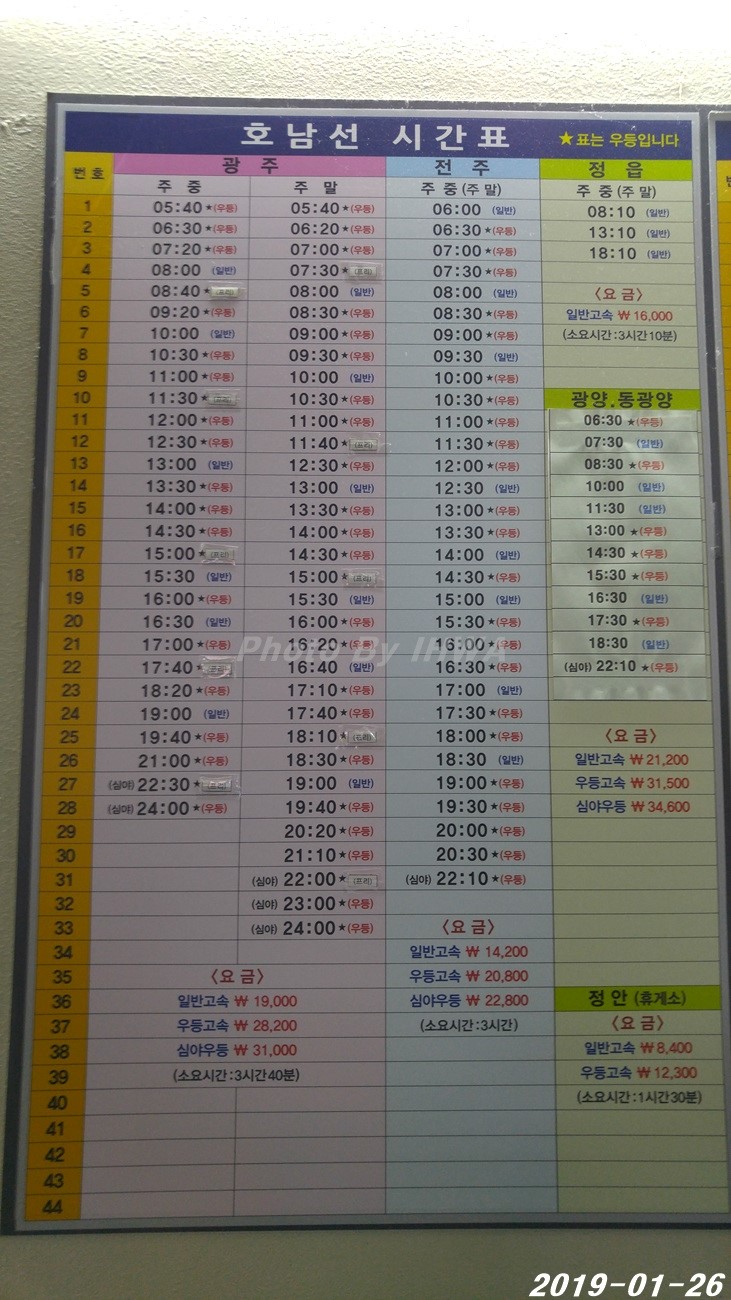 호남선 시간표 ★표는 우등입니다
번호 광주 전주 정읍
주중 주말 주중(주말) 주중(주말)
1 05:40★(우등) 05:40★(우등) 06:00 (일반) 08:10 (일반)
2 06:30★(우등) 06:20★(우등) 06:30★(우등) 13:10 (일반)
3 07:20★(우등) 07:00★(우등) 07:00★(우등) 18:10 (일반)
4 08:00 (일반) 07:30★(프리) 07:30★(우등)
5 08:40★(프리) 08:00 (일반) 08:00 (일반) <요금>
6 09:20★(우등) 08:30★(우등) 08:30★(우등) 일반고속 ₩16,000
7 10:00 (일반) 09:00★(우등) 09:00★(우등) (소요시간:3시간10분)
8 10:30★(우등) 09:30★(우등) 09:30 (일반)
9 11:00★(우등) 10:00 (일반) 10:00★(우등)
10 11:30★(프리) 10:30★(우등) 10:30★(우등) 광양.동광양
11 12:00★(우등) 11:00★(우등) 11:00★(우등) 06:30★(우등)
12 12:30★(우등) 11:40★(프리) 11:30★(우등) 07:30 (일반)
13 13:00 (일반) 12:30★(우등) 12:00★(우등) 08:30★(우등)
14 13:30★(우등) 13:00 (일반) 12:30 (일반) 10:00 (일반)
15 14:00★(우등) 13:30★(우등) 13:00★(우등) 11:30 (일반)
16 14:30★(우등) 14:00★(우등) 13:30★(우등) 13:00★(우등)
17 15:00★(프리) 14:30★(우등) 14:00 (일반) 14:30★(우등)
18 15:30 (일반) 15:00★(프리) 14:30★(우등) 15:30★(우등)
19 16:00★(우등) 15:30 (일반) 15:00 (일반) 16:30 (일반)
20 16:30 (일반) 16:00★(우등) 15:30★(우등) 17:30★(우등)
21 17:00★(우등) 16:20★(우등) 16:00★(우등) 18:30 (일반)
22 17:40★ 16:40 (일반) 16:30★(우등) (심야) 22:10★(우등)
23 18:20★(우등) 17:10★(우등) 17:00 (일반)
24 19:00 (일반) 17:40★(우등) 17:30★(우등)
25 19:40★(우등) 18:10★(프리) 18:00★(우등) <요금>
26 21:00★(우등) 18:30★(우등) 18:30 (일반) 일반고속 ₩21,200
27 (심야) 22:30★(프리) 19:00 (일반) 19:00★(우등) 우등고속 ₩31,500
28 (심야) 24:00★(우등) 19:40★(우등) 19:30★(우등) 심야우등 ₩34,600
29 20:20★(우등) 20:00★(우등)
30 21:10★(우등) 20:30★(우등)
31 (심야) 22:00★(프리) (심야) 22:10★(우등)
32 (심야) 23:00★(우등)
33 (심야) 24:00★(우등) <요금>
34 일반고속 ₩14,200
35 <요금> 우등고속 ₩20,800
36 일반고속 ₩19,000 심야우등 ₩22,800 정안 (휴게소)
37 우등고속 ₩28,200 (소요시간:3시간) <요금>
38 심야우등 ₩31,000 일반고속 ₩8,400
39 (소요시간:3시간40분) 우등고속 ₩12,300
40 (소요시간:1시간30분)
41
42
43
44
Photo By IHWA
2019-01-26